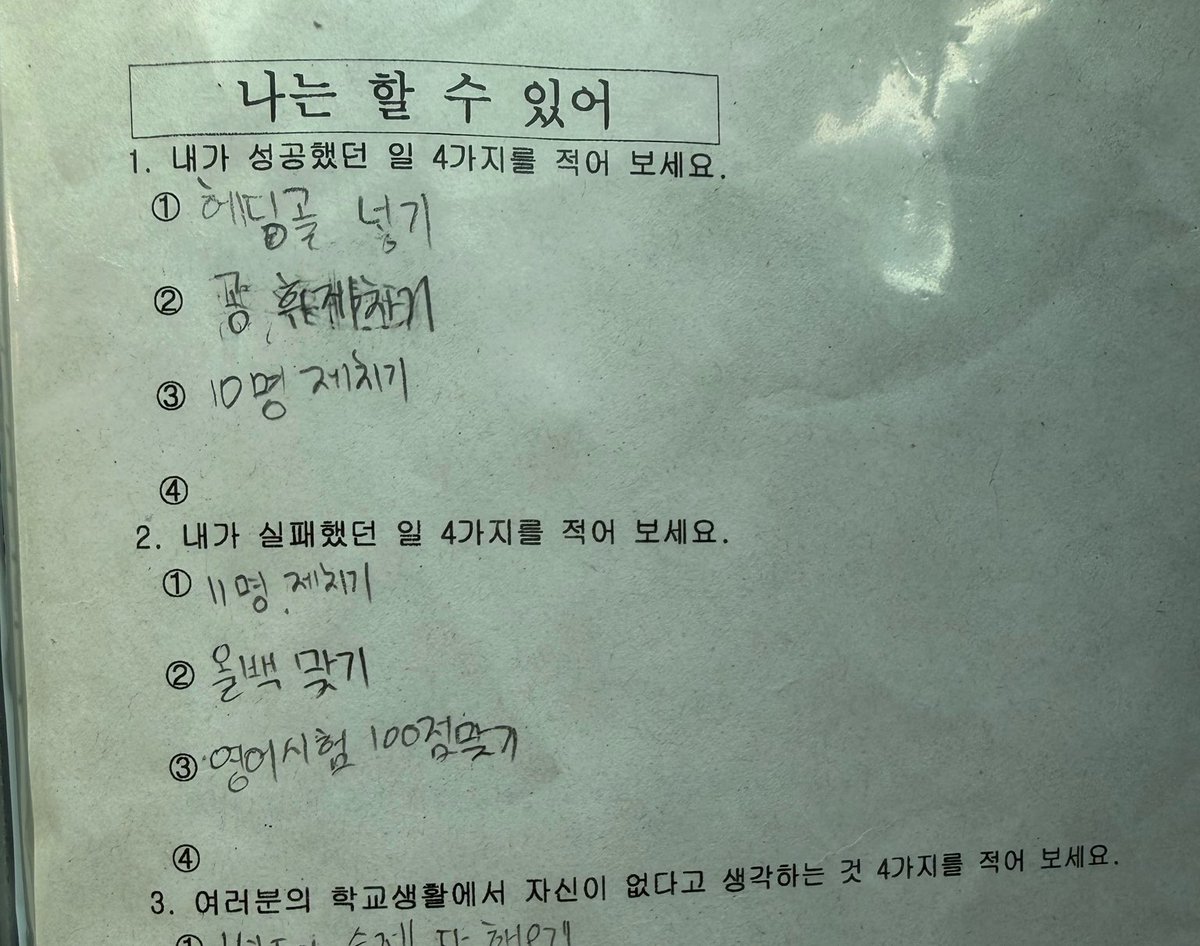 나는 할 수 있어
1. 내가 성공했던 일 4가지를 적어 보세요.
① 헤딩골 넣기
② 공
③ 10명 제치기
④
2. 내가 실패했던 일 4가지를 적어 보세요.
① 11명 제치기
② 올백 맞기
③ 영어시험 100점맞기
④
3. 여러분의 학교생활에서 자신이 없다고 생각하는 것 4가지를 적어 보세요.
① 숙제 다 해오기